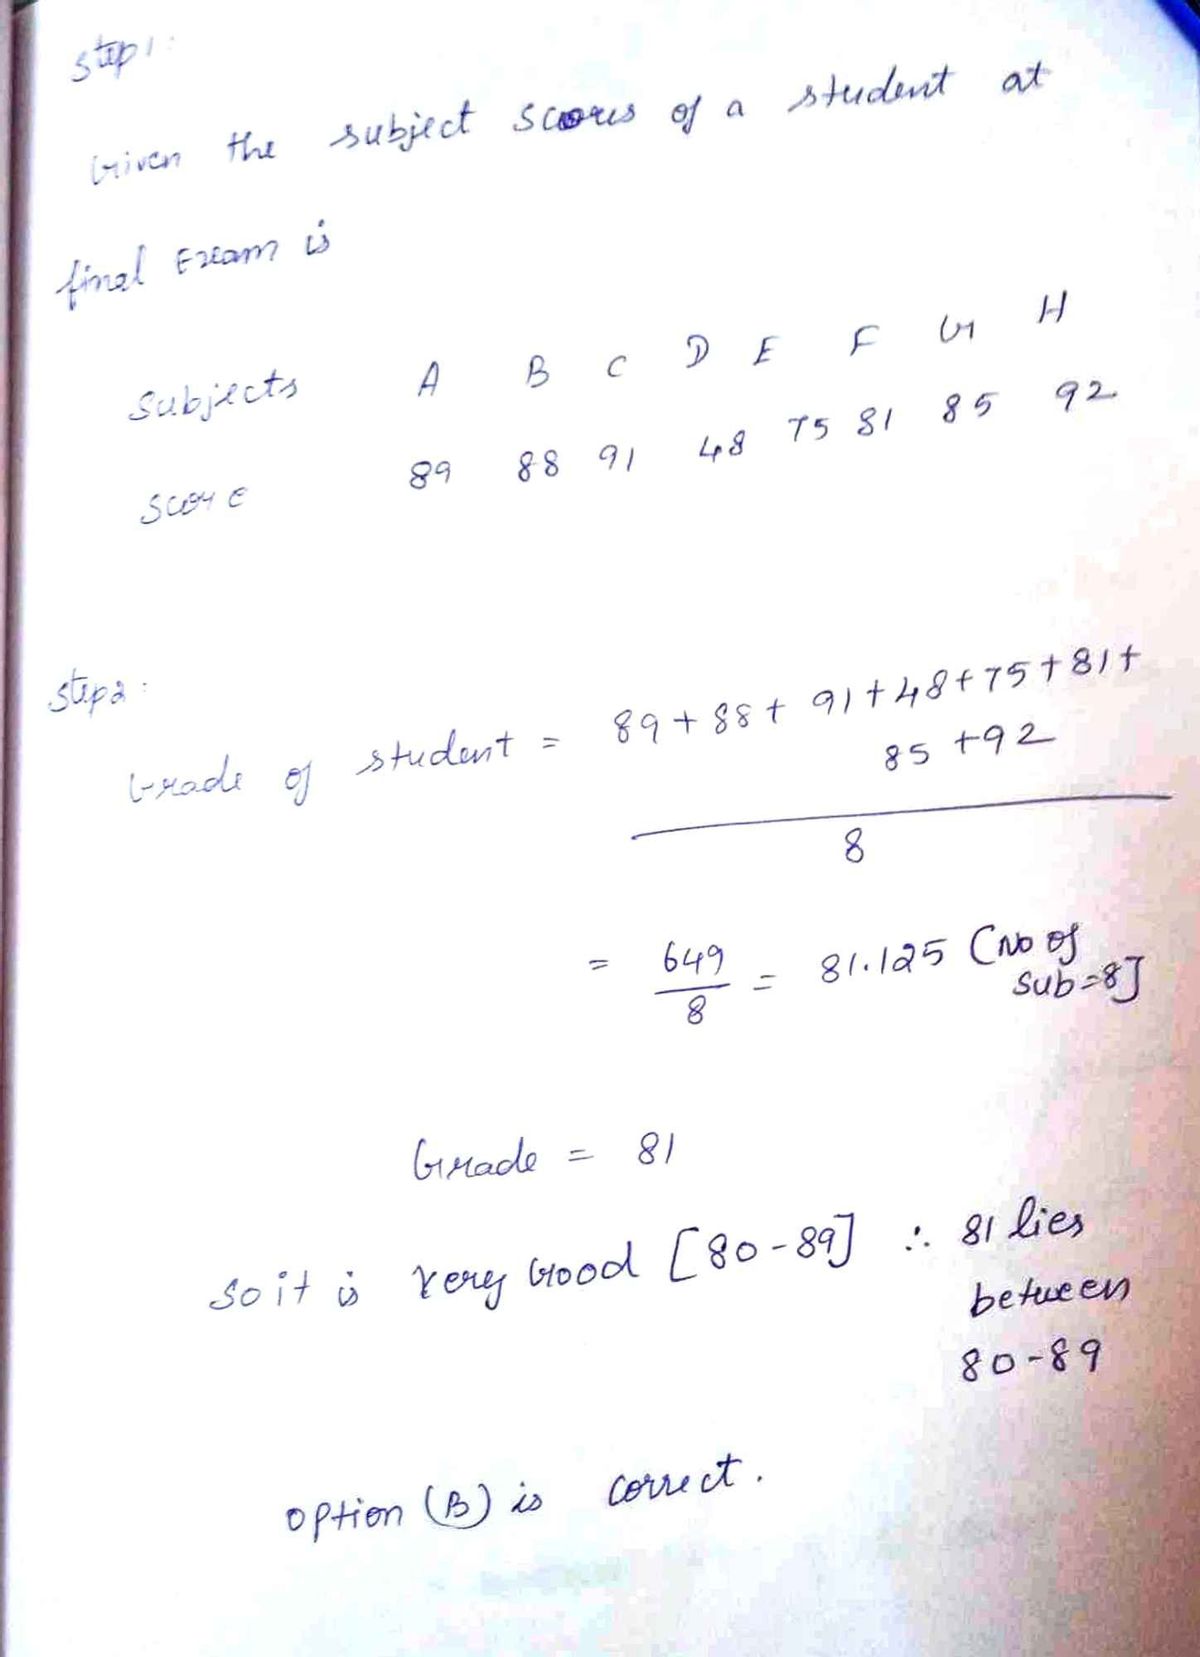 Step 1:
Given the subject scores of a student at
final Exam is
Subjects A B C D E F G H
Score 89 88 91 48 75 81 85 92
Step 2:
Grade of student = 89 + 88 + 91 + 48 + 75 + 81 +
85 + 92
8
= 649/8 = 81.125 [No of
sub = 8]
Grade = 81
So it is Very Good [80-89] ∴ 81 lies
between
80-89
option (B) is correct.